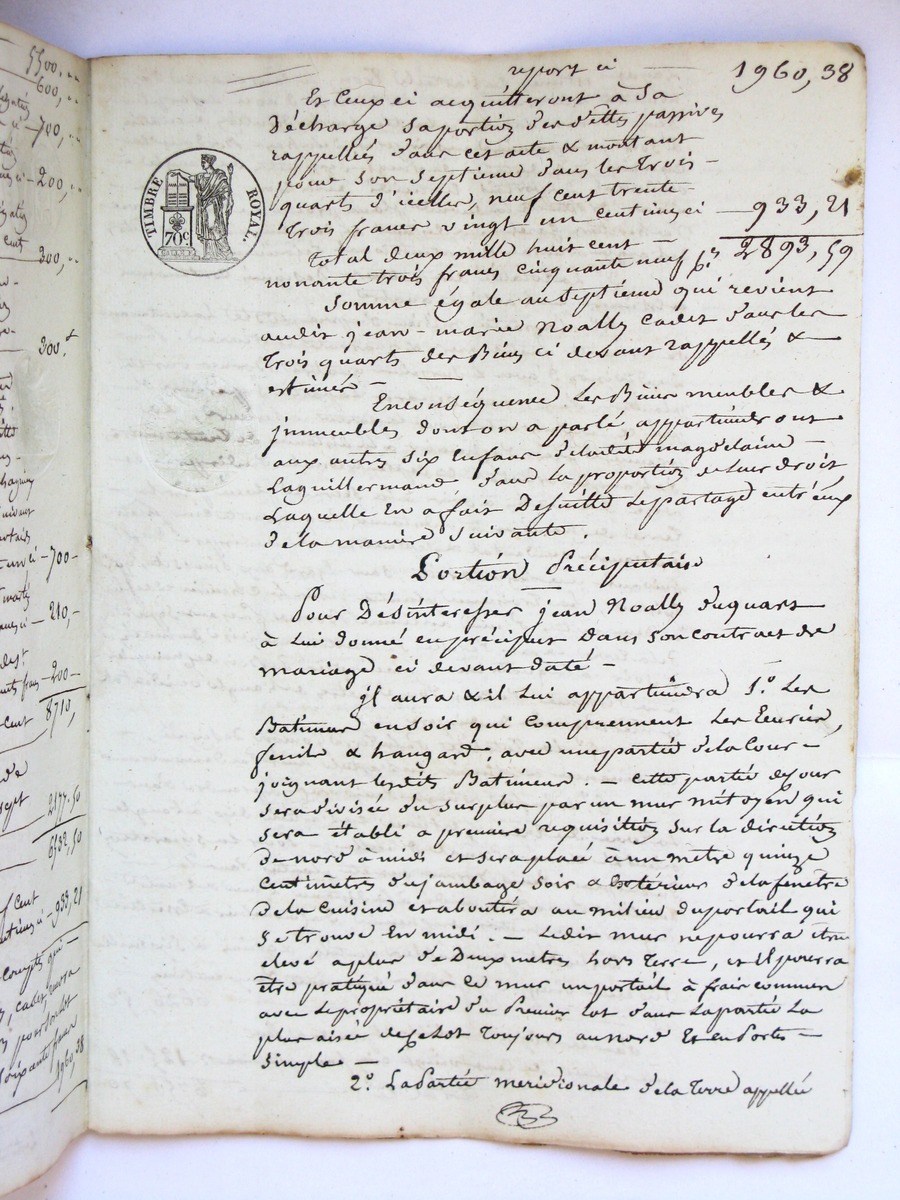 5500,..
600,..
700,..
200,..
300,..
300.
700
210,
200
8710,
2177.50
6532,50
933,21
1960,38
report ci 1960,38
Et Ceux ci acquitteront à Sa
Décharge Sa portion des dettes passives
rappellées dans cet acte & montant
pour Son Septieme dans les trois
quarts d'icelles, neuf cent trente
trois francs vingt un centimes ci — 933,21
Total deux mille huit cent —
nonante trois francs cinquante neuf 2893,59
Somme égale au Septieme qui revient
audit jean-marie Noally cadet dans les
trois quarts des Biens ci devant rappellés &
estimés —
En conséquence les Biens meubles &
immeubles dont on a parlé appartiendront
aux autres six Enfans de ladite magdelaine
Laquillermand dans la proportion de leur droit,
Laquelle En a fait De suitte le partage entr'eux
de la maniere suivante.
Portion Préciputaire
Pour Désinteresser jean Noally du quart
à Lui donné en préciput dans Son contract de
mariage ci devant daté —
il aura & il Lui appartiendra 1.º Les
Batimens en soir qui comprennent Les Ecuries,
fenils & hangard, avec une partie de la Cour —
joignant lesdits Batimens. — cette partie de Cour
sera divisée du surplus par un mur mitoyen qui
sera établi a premiere requisition sur la direction
de nord à midi et sera placé à un metre quinze
centimètres du jambage soir & Extérieur de la fenêtre
de la cuisine et aboutira au milieu du portail qui
se trouve En midi. — Ledit mur ne pourra être
élevé a plus de Deux metres hors terre, et il pourra
être pratiqué dans ce mur un portail à frais communs
avec Le propriétaire du Premier lot dans La partie La
plus aisée de ce Lot toujours au nord Et en Porte —
simple —
2.º La Partie meridionale de la Terre appellée
TIMBRE ROYAL.
70 c